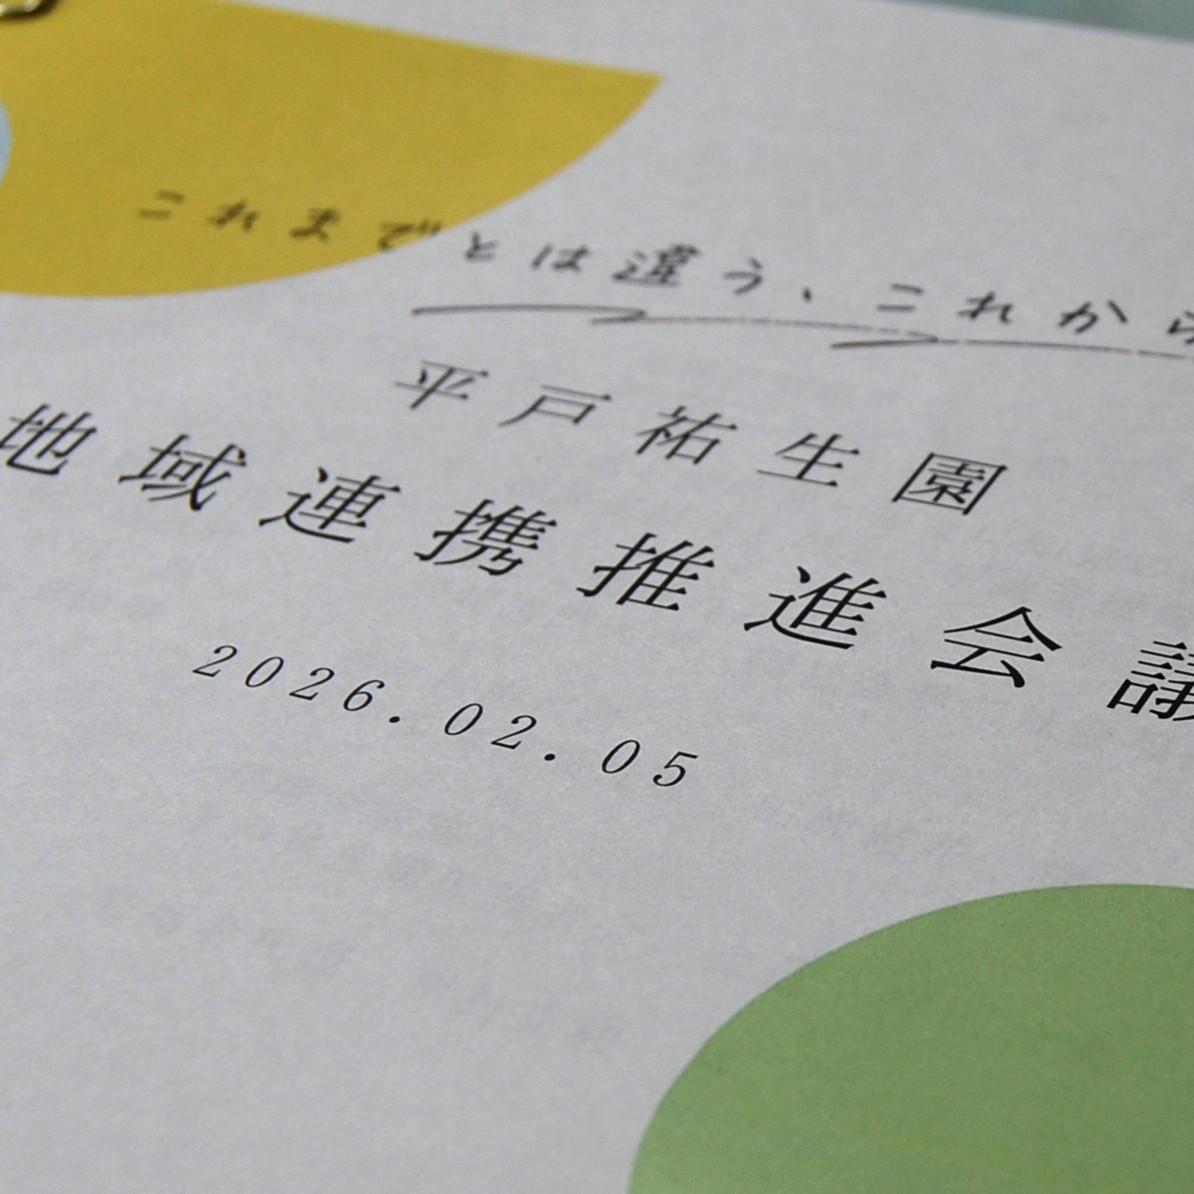 これまでとは違う、これから
平戸祐生園
地域連携推進会議
2026.02.05